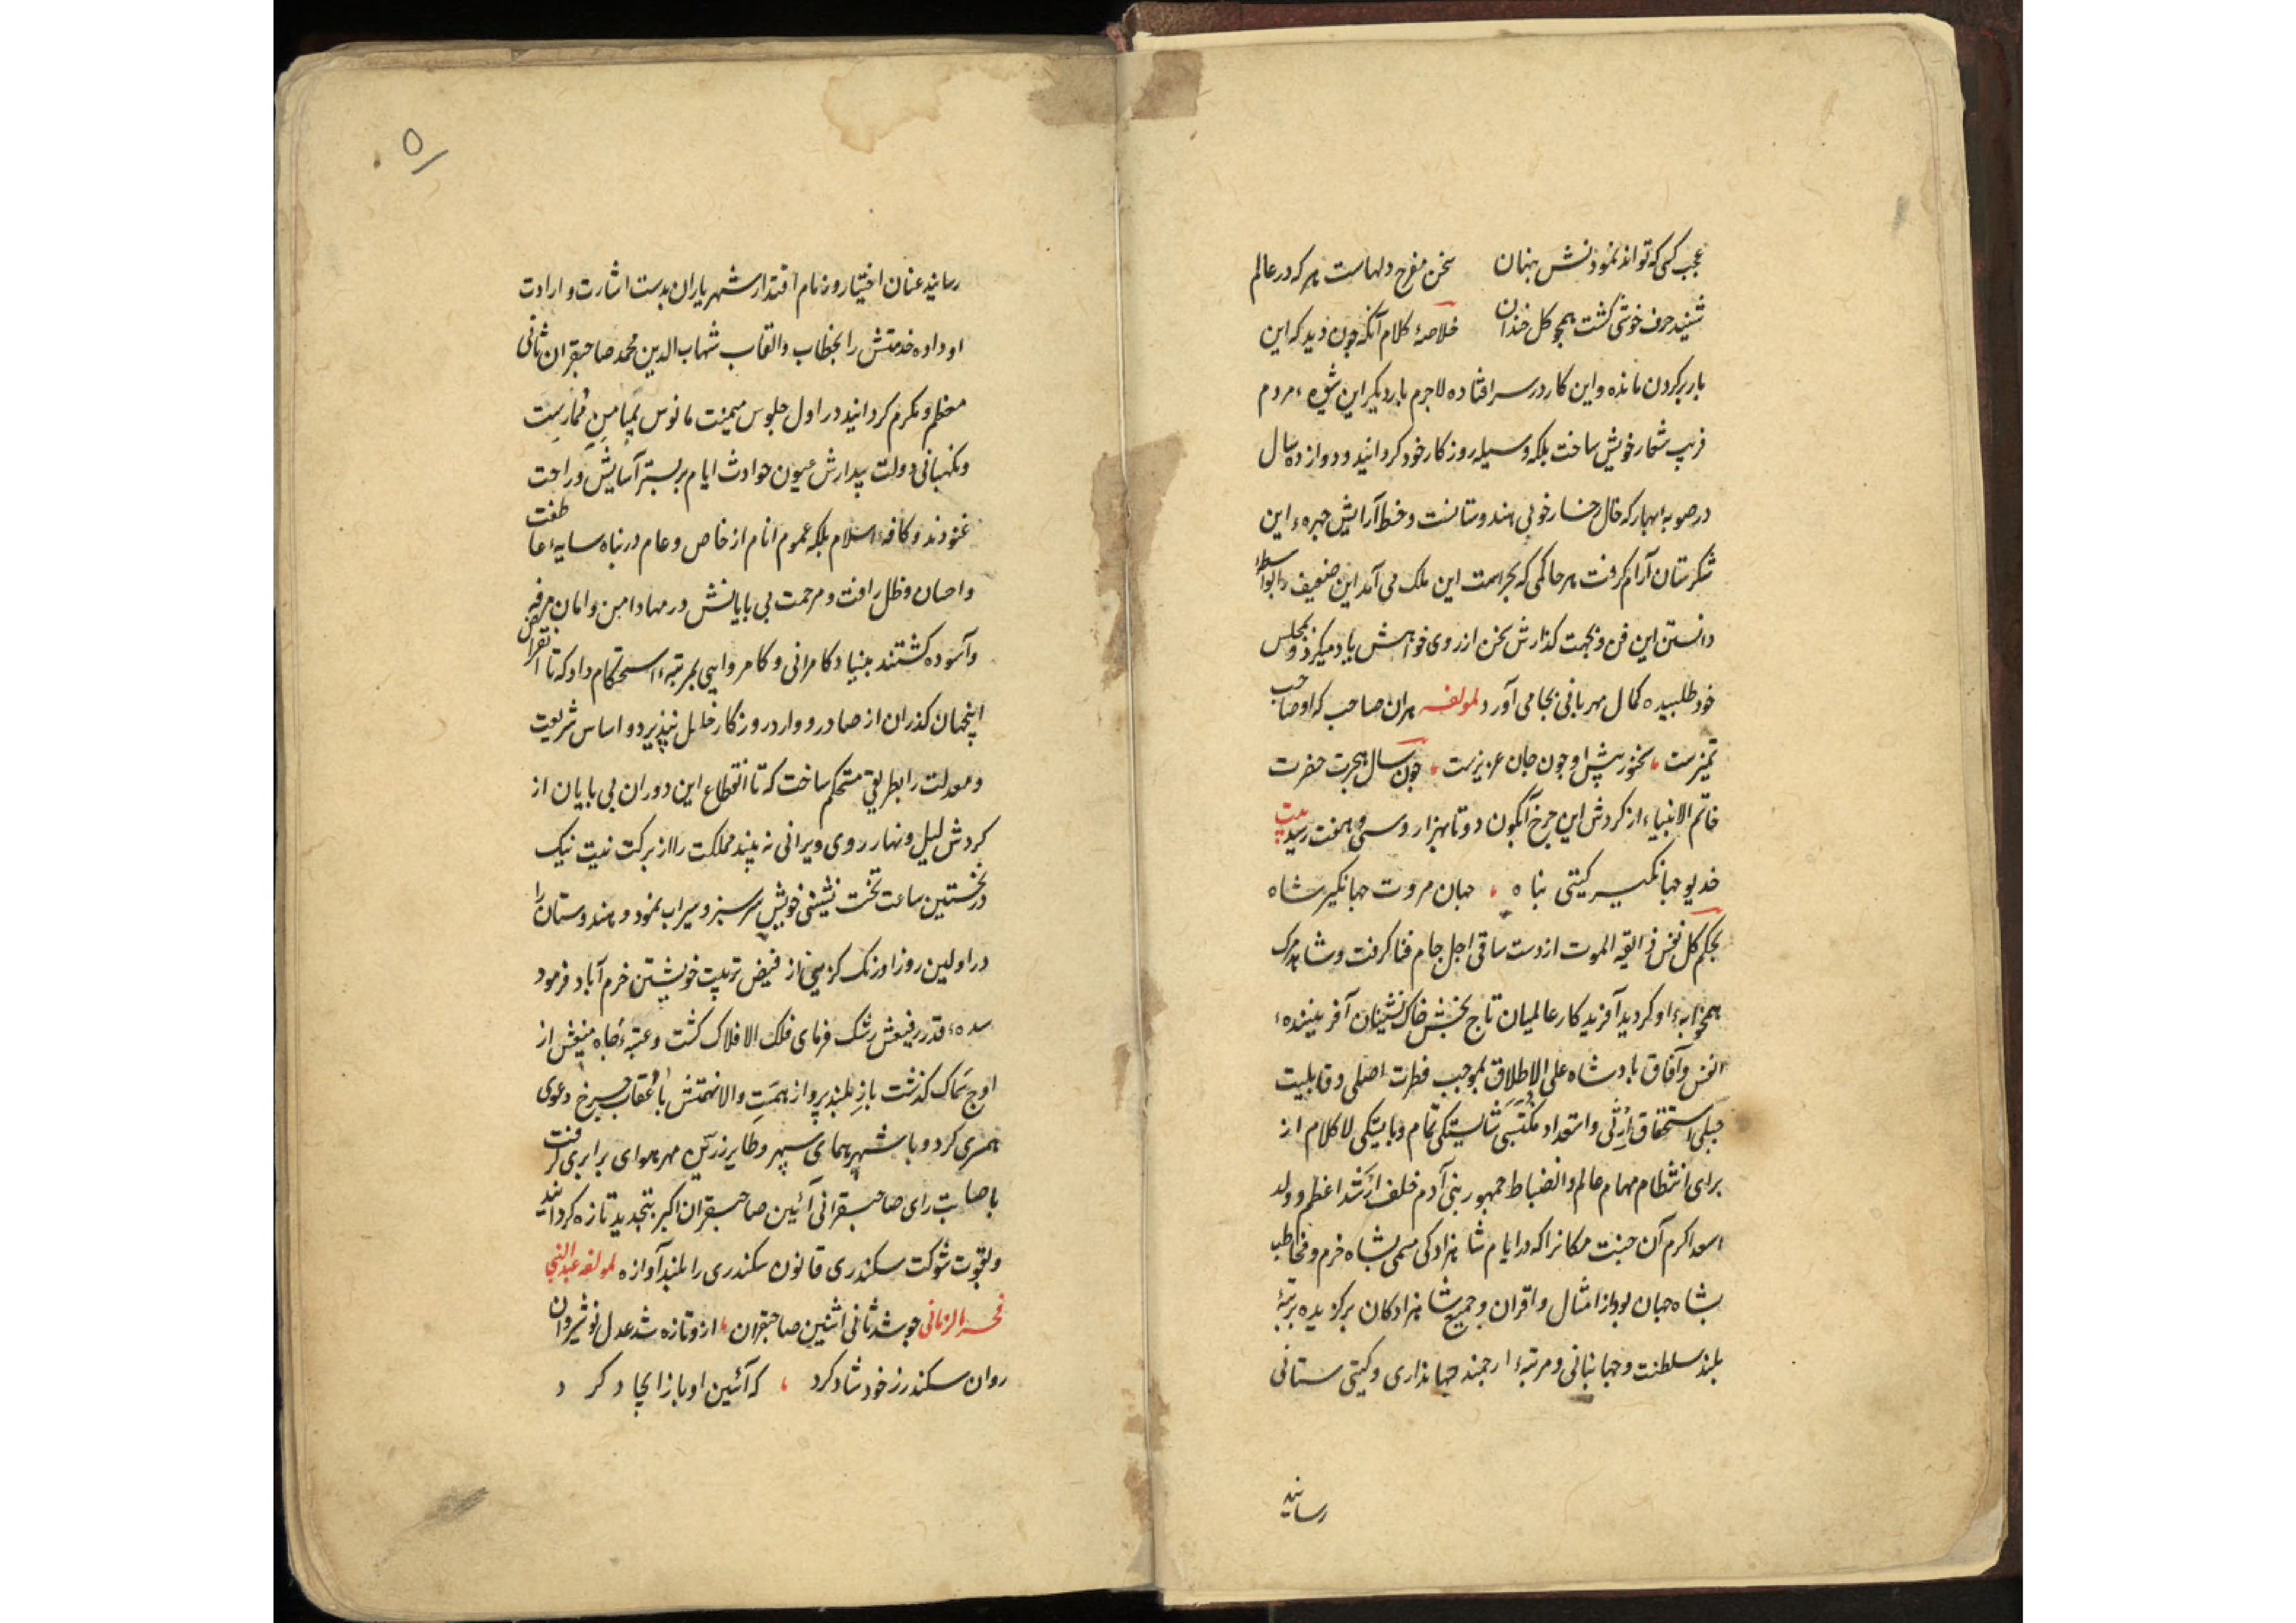 سخن مفرح دلهاست هر که در عالم
عجب کسی که تواند نمودنش پنهان
شنید حرف خوشی گشت همچو گل خندان
خلاصهٔ کلام آنکه چون دید که این
بار بر کردن مانده و این کار در سر افتاده لاجرم بار دیکر این شیوهٔ مردم
فریب شعار خویش ساخت بلکه وسیله روزکار خود کردانید و دوازده سال
در صوبه بهار که خال رخسار خوبی هندوستانست و خط آرایش چهرهٔ این
شکرستان آرام کرفت هر حاکمی که بحراست این ملک می آمد این ضعیف را بواسطهٔ
دانستن این فن و بجهت کذارش سخن از روی خواهش یاد میکرد و بمجلس
خود طلبیده کمال مهربانی بجا می آورد لمولفه هران صاحب که او صاحب
تمیزست ، سخنور پیش او چون جان عزیزست ، چون سال هجرت حضرت
خاتم الانبیاء از کردش این چرخ آبکون دوتا بهزار و سی و هفت رسید بیت
خدیو جهانکیر کیتی پناه ، جهان مروت جهانکیر شاه
بحکم کل نفس ذایقة الموت از دست ساقی اجل جام فنا کرفت و شاهد مرک
همخوابهٔ او کردید آفریدکار عالمیان تاج بخش خاک نشینان آفرینندهٔ
انفس و آفاق بادشاه علی الاطلاق بموجب فطرت اصلی و قابلیت
جبلی استحقاق ارثی و استعداد مکتسبی شایستکی تمام و بایستکی لاکلام از
برای انتظام مهام عالم و انضباط جمهور بنی آدم خلف ارشد اعظم و ولد
اسعد اکرم آن جنت مکانرا که در ایام شاهزادکی مسمی بشاه خرم و مخاطب
بشاه جهان بود از امثال و اقران و جمیع شاهزادکان برکزیده برتبهٔ
بلند سلطنت و جهانبانی و مرتبهٔ ارجمند جهانداری و کیتی ستانی
رسانید
۵
رسانید عنان اختیار و زمام اقتدار شهریاران بدست اشارت و ارادت
او داده خدمتش را بخطاب و القاب شهاب الدین محمد صاحبقران ثانی
معظم و مکرم کردانید در اول جلوس میمنت مانوس بمیامن ممارست
و نکهبانی دولت بیدارش عیون حوادث ایام بر بستر آسایش و راحت
غنودند و کافهٔ اسلام بلکه عموم انام از خاص و عام در پناه سایهٔ عاطفت
و احسان و ظل رافت و مرحمت بی پایانش در مهاد امن و امان مرفه
و آسوده کشتند بنیاد کامرانی و کامروایی بمرتبهٔ استحکام داد که تا انقراض
اینجهان کذران از صادر و وارد روزکار خلل نپذیرد و اساس شریعت
و معدلت را بطریقی مستحکم ساخت که تا انقطاع این دوران بی پایان از
کردش لیل و نهار روی ویرانی نه بیند مملکت را از برکت نیت نیک
در نخستین ساعت تخت نشینی خویش سرسبز و سیراب نمود و هندوستان را
در اولین روز اورنک کزینی از فیض تربیت خویشتن خرم آباد فرمود
سدهٔ قدر رفیعش رشک فرمای فلک الافلاک کشت و عتبهٔ جاه منیعش از
اوج سماک کذشت باز بلند پرواز همت والا نهمتش با عقاب چرخ دعوی
همسری کرد و با شهپر همای سپهر و طایر زرین مهر هوای برابری کرفت
باصابت رای صاحبقرانی آئین صاحبقران اکبر بتجدید تازه کردانید
و بقوت شوکت سکندری قانون سکندری را بلند آوازه لمولفه عبدالنبی
فخر الزمانی چو شد ثانی اثنین صاحبقران ، ازو تازه شد عدل نوشیروان
روان سکندر ز خود شاد کرد ، که آئین او باز ایجاد کرد